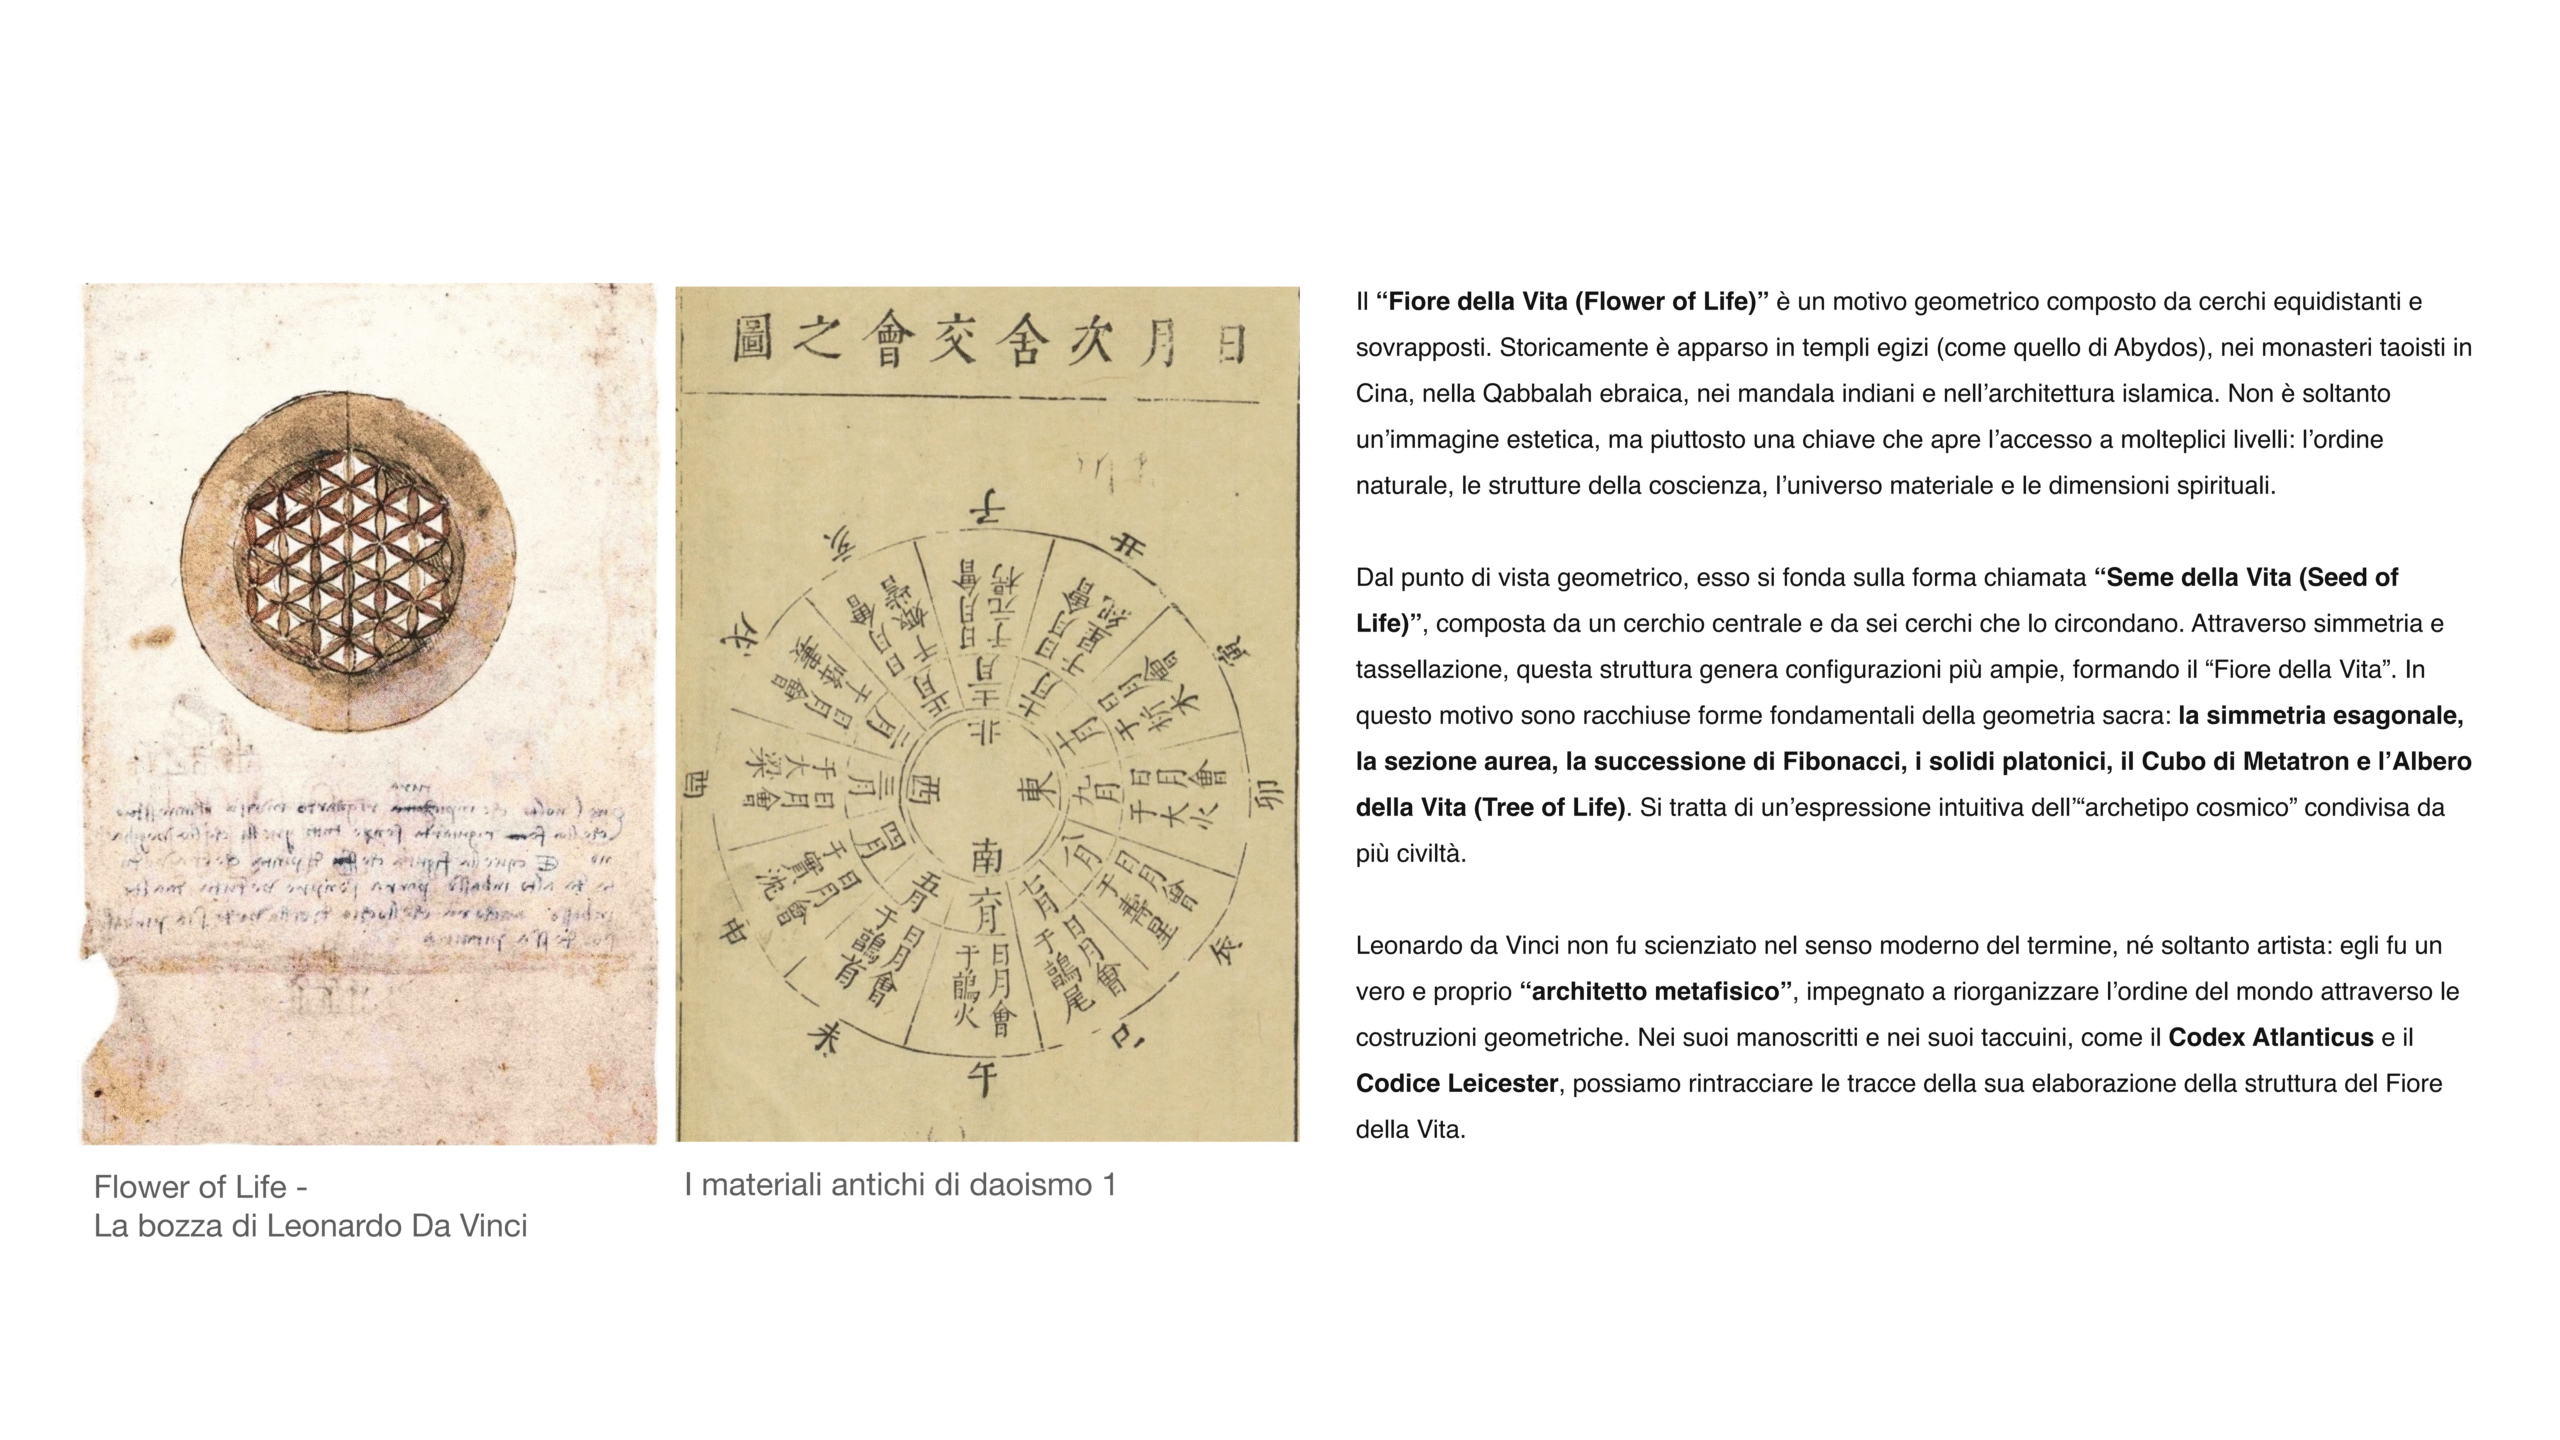 日月次舍交會之圖
子
丑
寅
卯
辰
巳
午
未
申
酉
戌
亥
日月會
于元枵
十二月
日月會
于星紀
十一月
日月會
于析木
十月
日月會
于大火
九月
日月會
于壽星
八月
日月會
于鶉尾
七月
日月會
于鶉火
六月
日月會
于鶉首
五月
日月會
于實沈
四月
日月會
于大梁
三月
日月會
于降婁
二月
日月會
于娵訾
正月
北
東
南
西
Flower of Life -
La bozza di Leonardo Da Vinci
I materiali antichi di daoismo 1
Il “Fiore della Vita (Flower of Life)” è un motivo geometrico composto da cerchi equidistanti e
sovrapposti. Storicamente è apparso in templi egizi (come quello di Abydos), nei monasteri taoisti in
Cina, nella Qabbalah ebraica, nei mandala indiani e nell’architettura islamica. Non è soltanto
un’immagine estetica, ma piuttosto una chiave che apre l’accesso a molteplici livelli: l’ordine
naturale, le strutture della coscienza, l’universo materiale e le dimensioni spirituali.
Dal punto di vista geometrico, esso si fonda sulla forma chiamata “Seme della Vita (Seed of
Life)”, composta da un cerchio centrale e da sei cerchi che lo circondano. Attraverso simmetria e
tassellazione, questa struttura genera configurazioni più ampie, formando il “Fiore della Vita”. In
questo motivo sono racchiuse forme fondamentali della geometria sacra: la simmetria esagonale,
la sezione aurea, la successione di Fibonacci, i solidi platonici, il Cubo di Metatron e l’Albero
della Vita (Tree of Life). Si tratta di un’espressione intuitiva dell’“archetipo cosmico” condivisa da
più civiltà.
Leonardo da Vinci non fu scienziato nel senso moderno del termine, né soltanto artista: egli fu un
vero e proprio “architetto metafisico”, impegnato a riorganizzare l’ordine del mondo attraverso le
costruzioni geometriche. Nei suoi manoscritti e nei suoi taccuini, come il Codex Atlanticus e il
Codice Leicester, possiamo rintracciare le tracce della sua elaborazione della struttura del Fiore
della Vita.